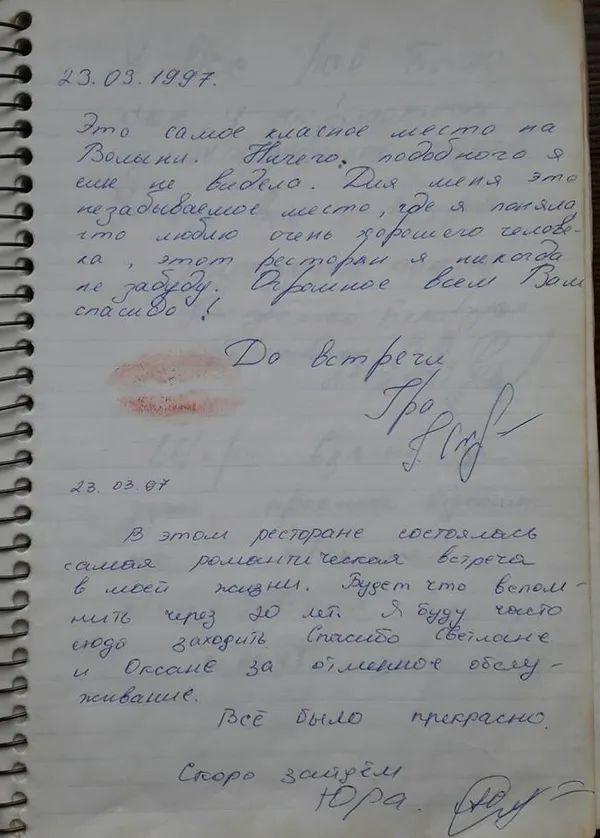 23.03.1997.
Это самое класное место на
Волыни. Ничего подобного я
еще не видела. Для меня это
незабываемое место, где я поняла,
что люблю очень хорошего челове-
ка, этот ресторан я никогда
не забуду. Огромное всем Вам
спасибо!
До встречи
23.03.97
В этом ресторане состоялась
самая романтическая встреча
в моей жизни. Будет что вспом-
нить через 20 лет. Я буду часто
сюда заходить. Спасибо Светлане
и Оксане за отменное обслу-
живание.
Всё было прекрасно.
Скоро зайдём
Юра.